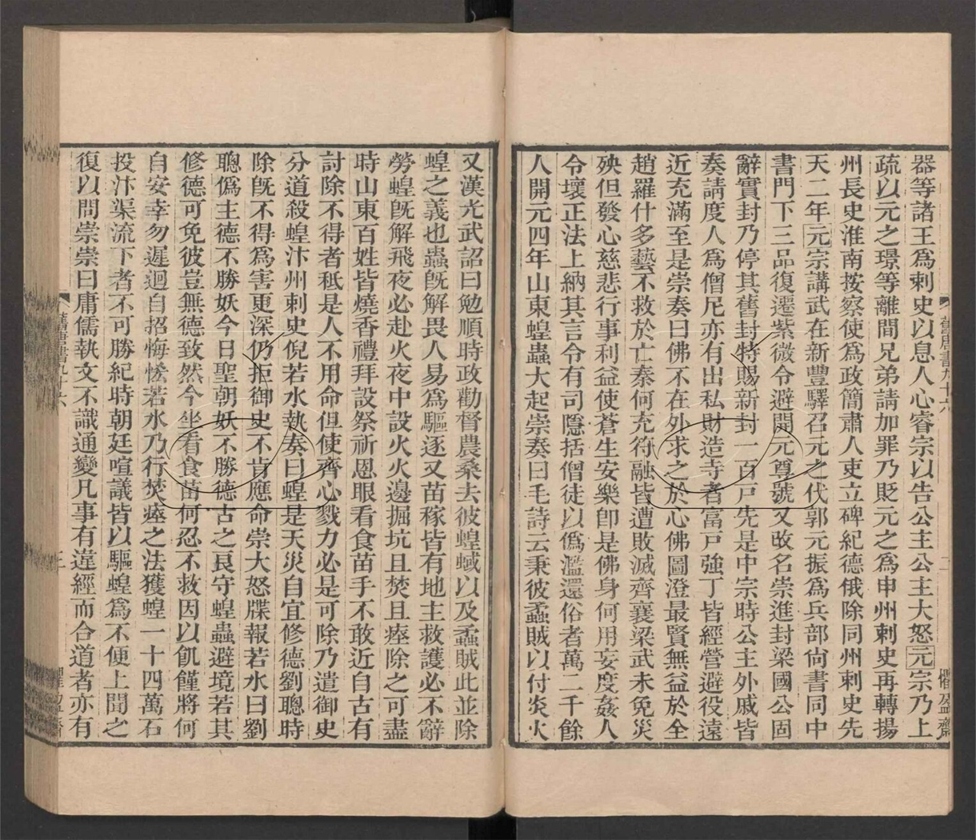 器等諸王爲刺史以息人心睿宗以告公主公主大怒元宗乃上
疏以元之璟等離間兄弟請加罪乃貶元之爲申州刺史再轉揚
州長史淮南按察使爲政簡肅人吏立碑紀德俄除同州刺史先
天二年元宗講武在新豐驛召元之代郭元振爲兵部尙書同中
書門下三品復遷紫微令避開元尊號又改名崇進封梁國公固
辭實封乃停其舊封特賜新封一百戸先是中宗時公主外戚皆
奏請度人爲僧尼亦有出私財造寺者富戸強丁皆經營避役遠
近充滿至是崇奏曰佛不在外求之於心佛圖澄最賢無益於全
趙羅什多藝不救於亡秦何充符融皆遭敗滅齊襄梁武未免災
殃但發心慈悲行事利益使蒼生安樂卽是佛身何用妄度姦人
令壞正法上納其言令有司隱括僧徒以僞濫還俗者萬二千餘
人開元四年山東蝗蟲大起崇奏曰毛詩云秉彼蟊賊以付炎火
又漢光武詔曰勉順時政勸督農桑去彼蝗蜮以及蟊賊此並除
蝗之義也蟲旣解畏人易爲驅逐又苗稼皆有地主救護必不辭
勞蝗旣解飛夜必赴火夜中設火火邊掘坑且焚且瘞除之可盡
時山東百姓皆燒香禮拜設祭祈恩眼看食苗手不敢近自古有
討除不得者秪是人不用命但使齊心戮力必是可除乃遣御史
分道殺蝗汴州刺史倪若水執奏曰蝗是天災自宜修德劉聰時
除旣不得爲害更深仍拒御史不肯應命崇大怒牒報若水曰劉
聰僞主德不勝妖今日聖朝妖不勝德古之良守蝗蟲避境若其
修德可免彼豈無德致然今坐看食苗何忍不救因以飢饉將何
自安幸勿遲迴自招悔恡若水乃行焚瘞之法獲蝗一十四萬石
投汴渠流下者不可勝紀時朝廷喧議皆以驅蝗爲不便上聞之
復以問崇崇曰庸儒執文不識通變凡事有違經而合道者亦有
舊唐書九十六
三
懼盈齋